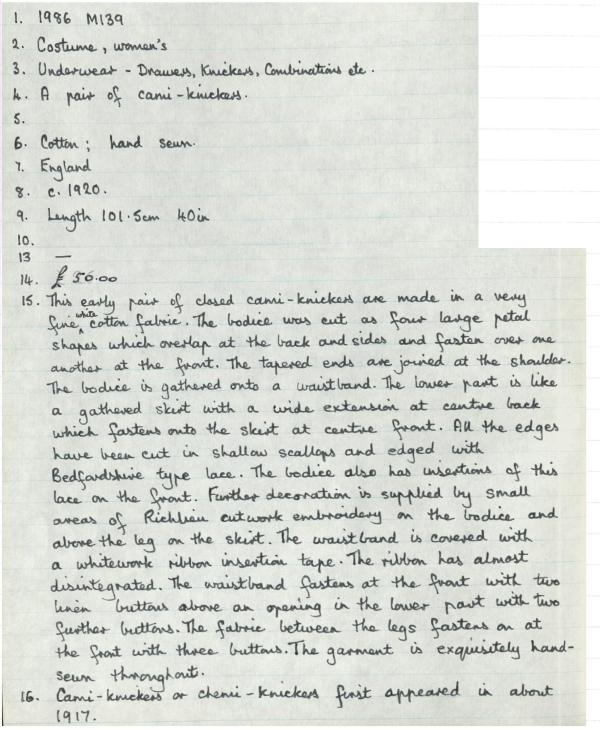 1. 1986 M139
2. Costume, women's
3. Underwear - Drawers, Knickers, Combinations etc.
4. A pair of cami-knickers.
5.
6. Cotton; hand sewn.
7. England
8. c. 1920.
9. Length 101.5cm 40in
10.
13 —
14. £50.00
15. This early pair of closed cami-knickers are made in a very
fine, white cotton fabric. The bodice was cut as four large petal
shapes which overlap at the back and sides and fasten over one
another at the front. The tapered ends are joined at the shoulder.
The bodice is gathered onto a waistband. The lower part is like
a gathered skirt with a wide extension at centre back
which fastens onto the skirt at centre front. All the edges
have been cut in shallow scallops and edged with
Bedfordshire type lace. The bodice also has insertions of this
lace on the front. Further decoration is supplied by small
areas of Richlieu cutwork embroidery on the bodice and
above the leg on the skirt. The waistband is covered with
a whitework ribbon insertion tape. The ribbon has almost
disintegrated. The waistband fastens at the front with two
linen buttons above an opening in the lower part with two
further buttons. The fabric between the legs fastens on at
the front with three buttons. The garment is exquisitely hand-
sewn throughout.
16. Cami-knickers or chemi-knickers first appeared in about
1917.